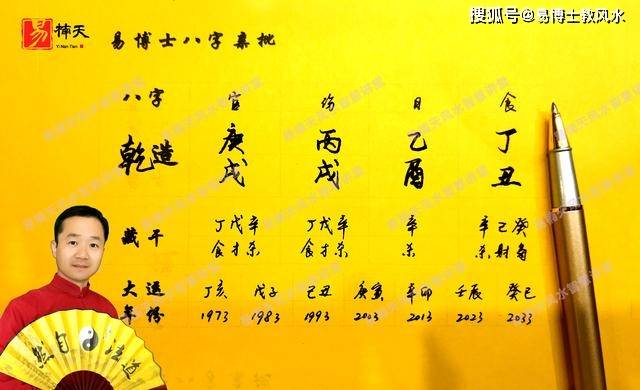 搜狐号@易博士教风水
易 楠天
Yi Nan Tian
易博士八字亲批
八字 官 伤 日 食
乾造 庚 丙 乙 丁
戌 戌 酉 丑
藏干 丁戊辛 丁戊辛 辛 辛己癸
食才杀 食才杀 杀 杀财枭
大运 丁亥 戊子 己丑 庚寅 辛卯 壬辰 癸巳
年份 1973 1983 1993 2003 2013 2023 2033
然自法道